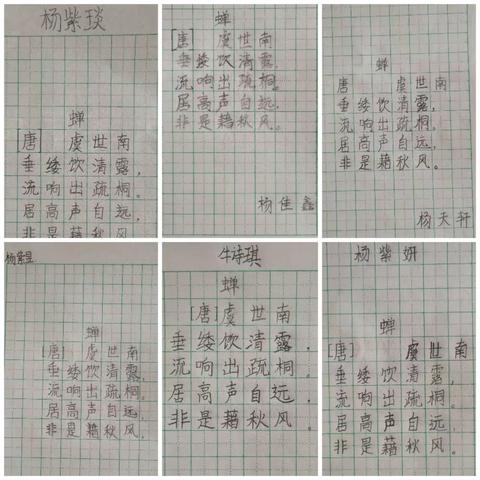 杨紫琰
蝉
唐 虞世南
垂緌饮清露,
流响出疏桐。
居高声自远,
非是藉秋风
蝉
[唐] 虞世南
垂緌饮清露,
流响出疏桐。
居高声自远,
非是藉秋风。
杨佳鑫
蝉
唐 虞世南
垂緌饮清露,
流响出疏桐。
居高声自远,
非是藉秋风。
杨天轩
杨紫昱
蝉
[唐] 虞世南
垂緌饮清露,
流响出疏桐。
居高声自远
非是藉秋风,
牛诗琪
蝉
[唐]虞世南
垂緌饮清露,
流响出疏桐。
居高声自远,
非是藉秋风。
杨紫妍
蝉
[唐] 虞世南
垂緌饮清露,
流响出疏桐。
居高声自远,
非是藉秋风。